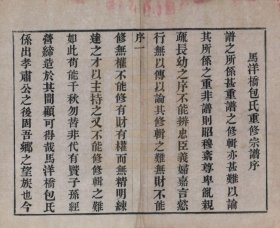 馬洋橋包氏重修宗譜序
譜之所係甚重譜之修輯亦甚難以論
其所係之重非譜則昭穆紊尊卑亂親
疏長幼之序不能辨忠臣義婦嘉言懿
行無以傳以論其修輯之難無財不能
序一
修無權不能修有財有權而無精明練
達之才以主持之又不能修修輯之難
如此苟能千秋勿替非代有賢子孫經
營締造於其間顧可得哉馬洋橋包氏
係出孝肅公之後固吾鄉之望族也今